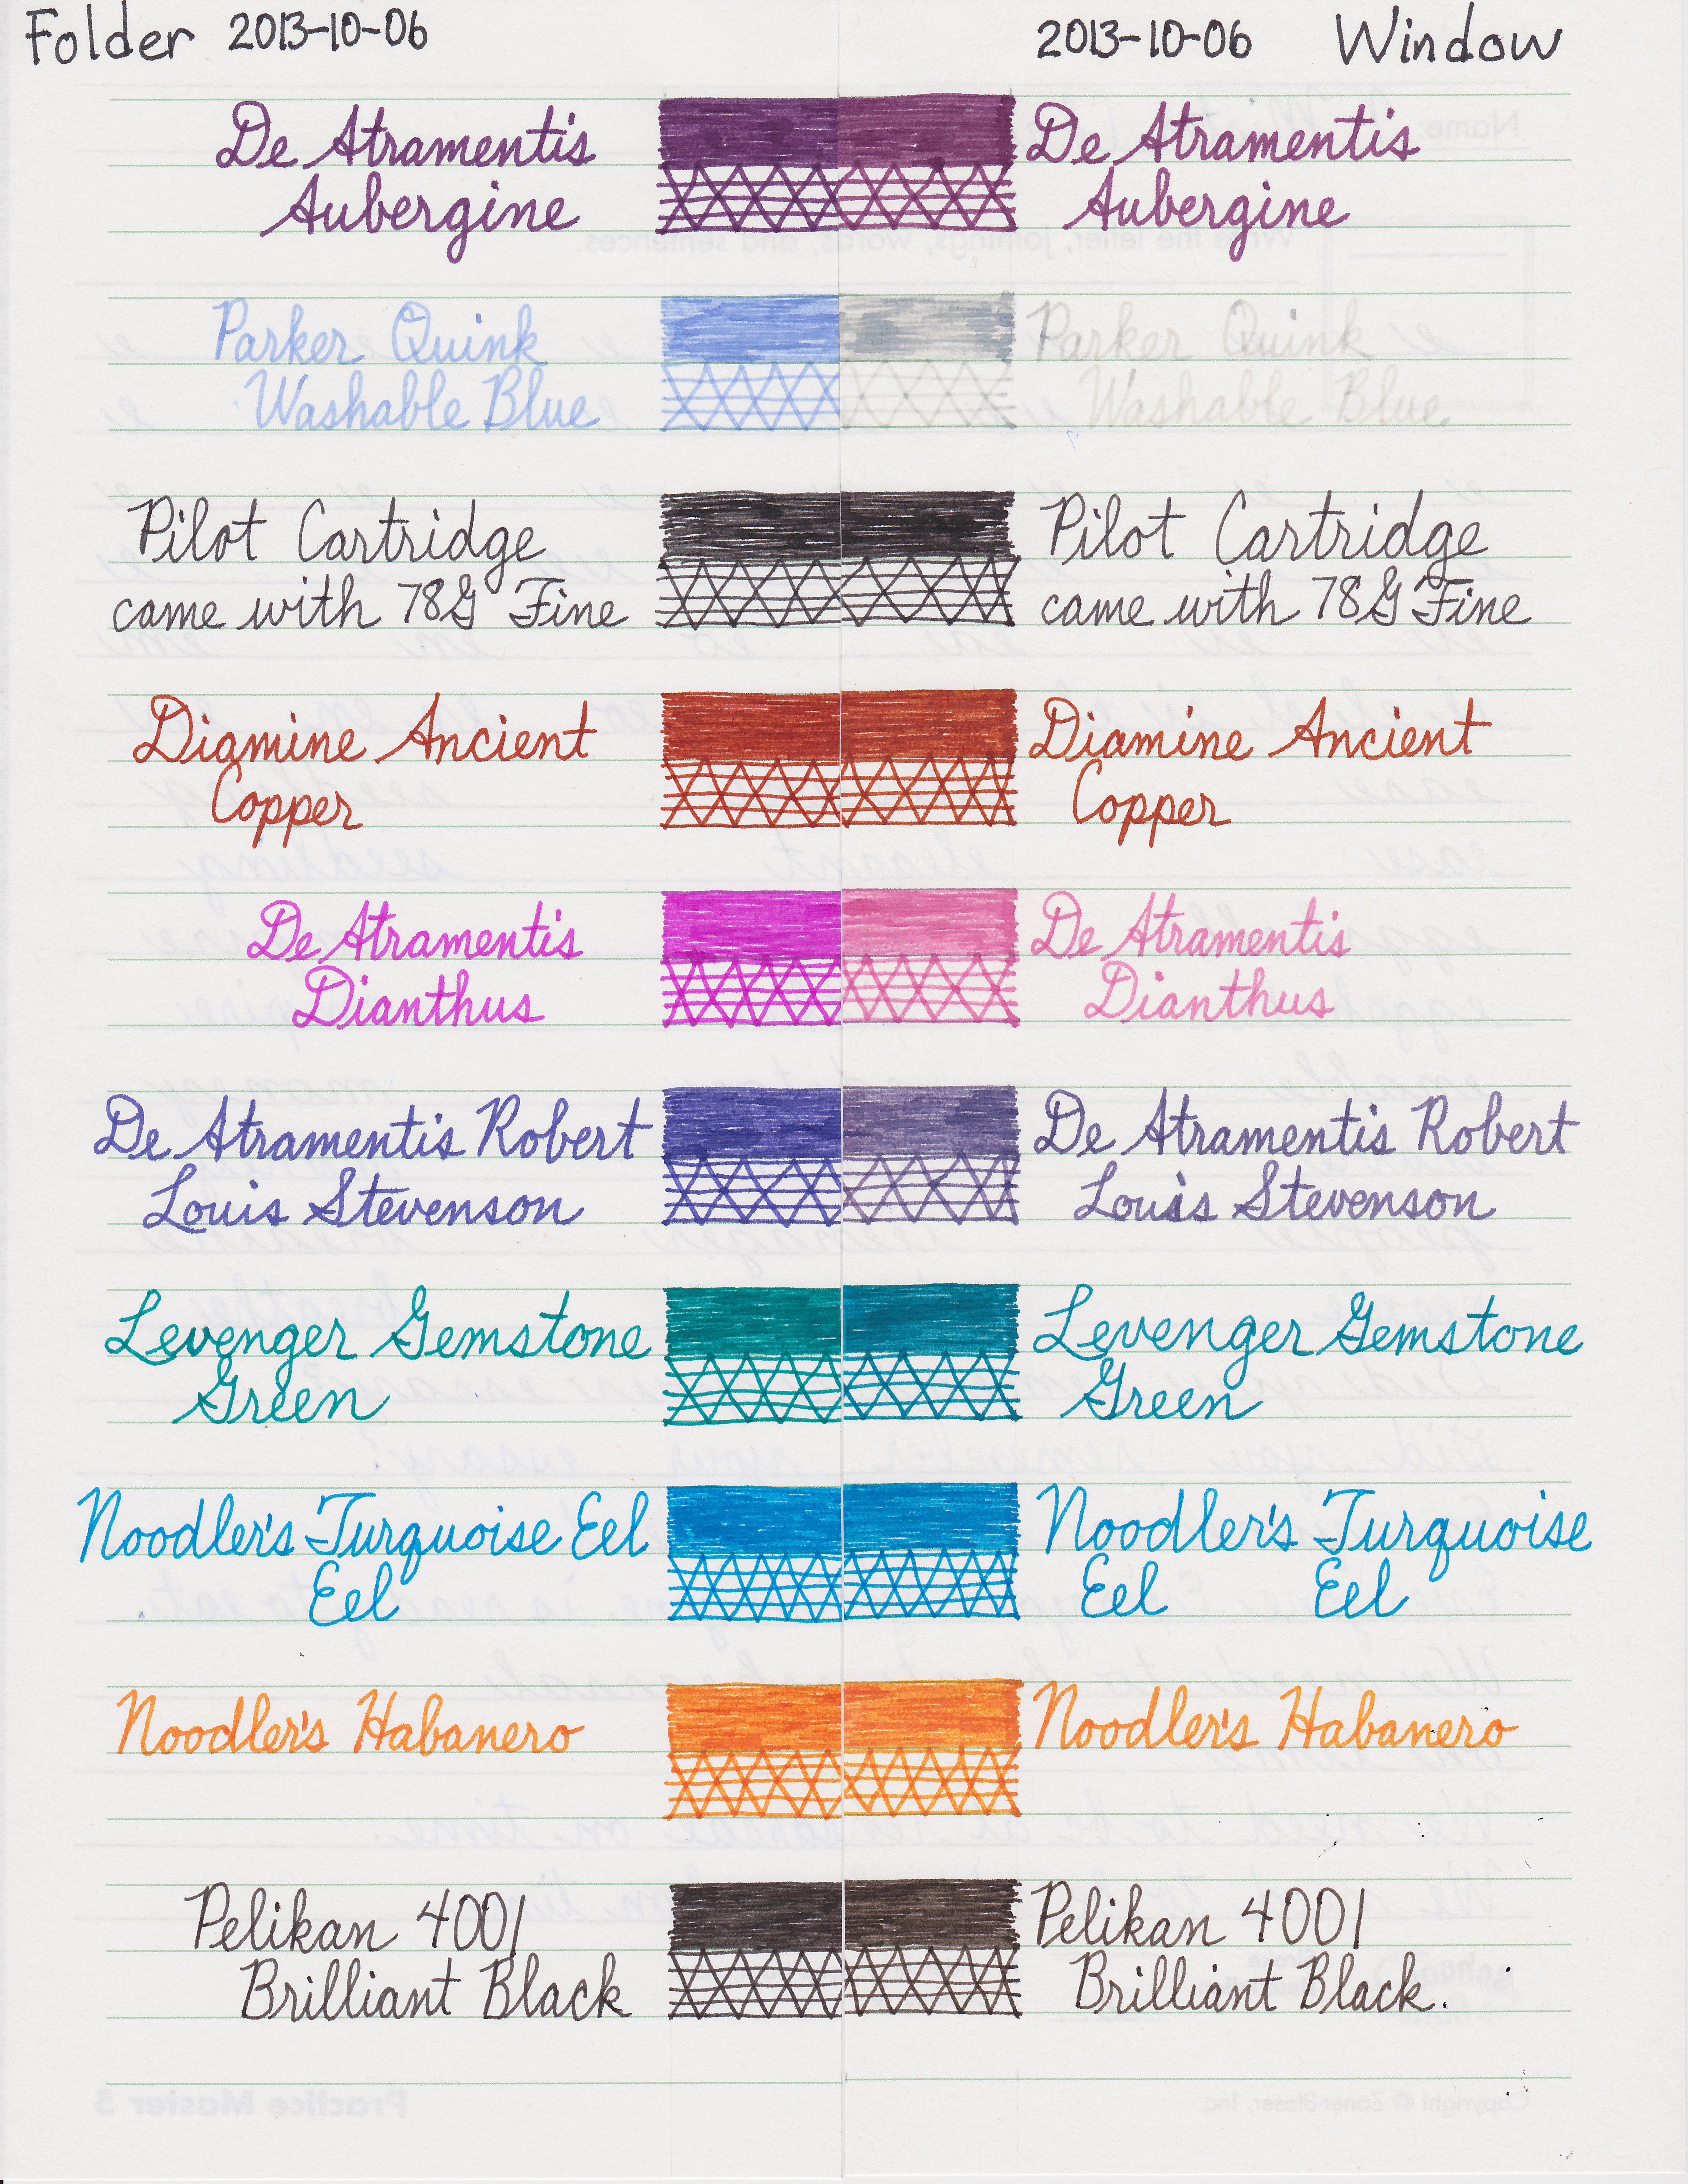 Folder 2013-10-06
De Atramentis
Aubergine
Parker Quink
Washable Blue
Pilot Cartridge
came with 78G Fine
Diamine Ancient
Copper
De Atramentis
Dianthus
De Atramentis Robert
Louis Stevenson
Levenger Gemstone
Green
Noodler's Turquoise Eel
Eel
Noodler's Habanero
Pelikan 4001
Brilliant Black
2013-10-06 Window
De Atramentis
Aubergine
Parker Quink
Washable Blue
Pilot Cartridge
came with 78G Fine
Diamine Ancient
Copper
De Atramentis
Dianthus
De Atramentis Robert
Louis Stevenson
Levenger Gemstone
Green
Noodler's Turquoise
Eel Eel
Noodler's Habanero
Pelikan 4001
Brilliant Black.
Name:
Write the letter, joinings, words, and sentences.
Practice Master 5
Copyright © Zaner-Bloser, Inc.